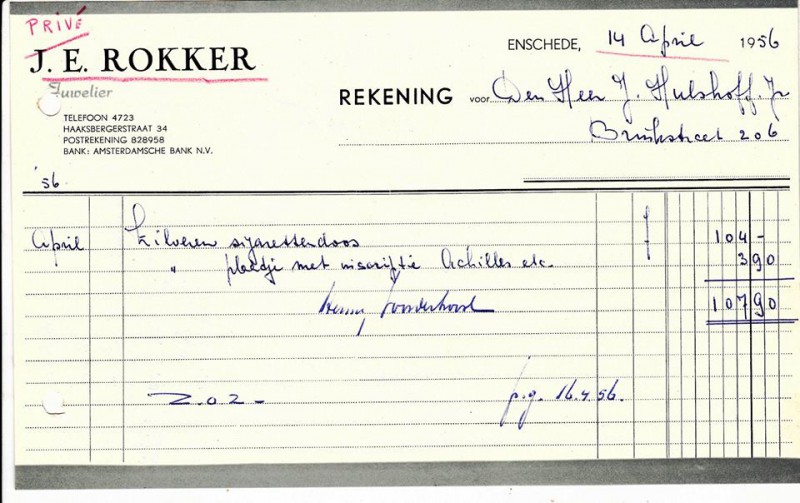 PRIVÉ
J. E. ROKKER
Juwelier
TELEFOON 4723
HAAKSBERGERSTRAAT 34
POSTREKENING 828958
BANK: AMSTERDAMSCHE BANK N.V.
ENSCHEDE, 14 April 1956
REKENING voor Den Heer J. Hulshoff. Jr
206
'56.
April Zilveren sigarettendoos f 104 -
" plaatje met inscriptie Achilles etc. 3 90
107 90
Z.O.Z. -
p.g. 16.4.56.